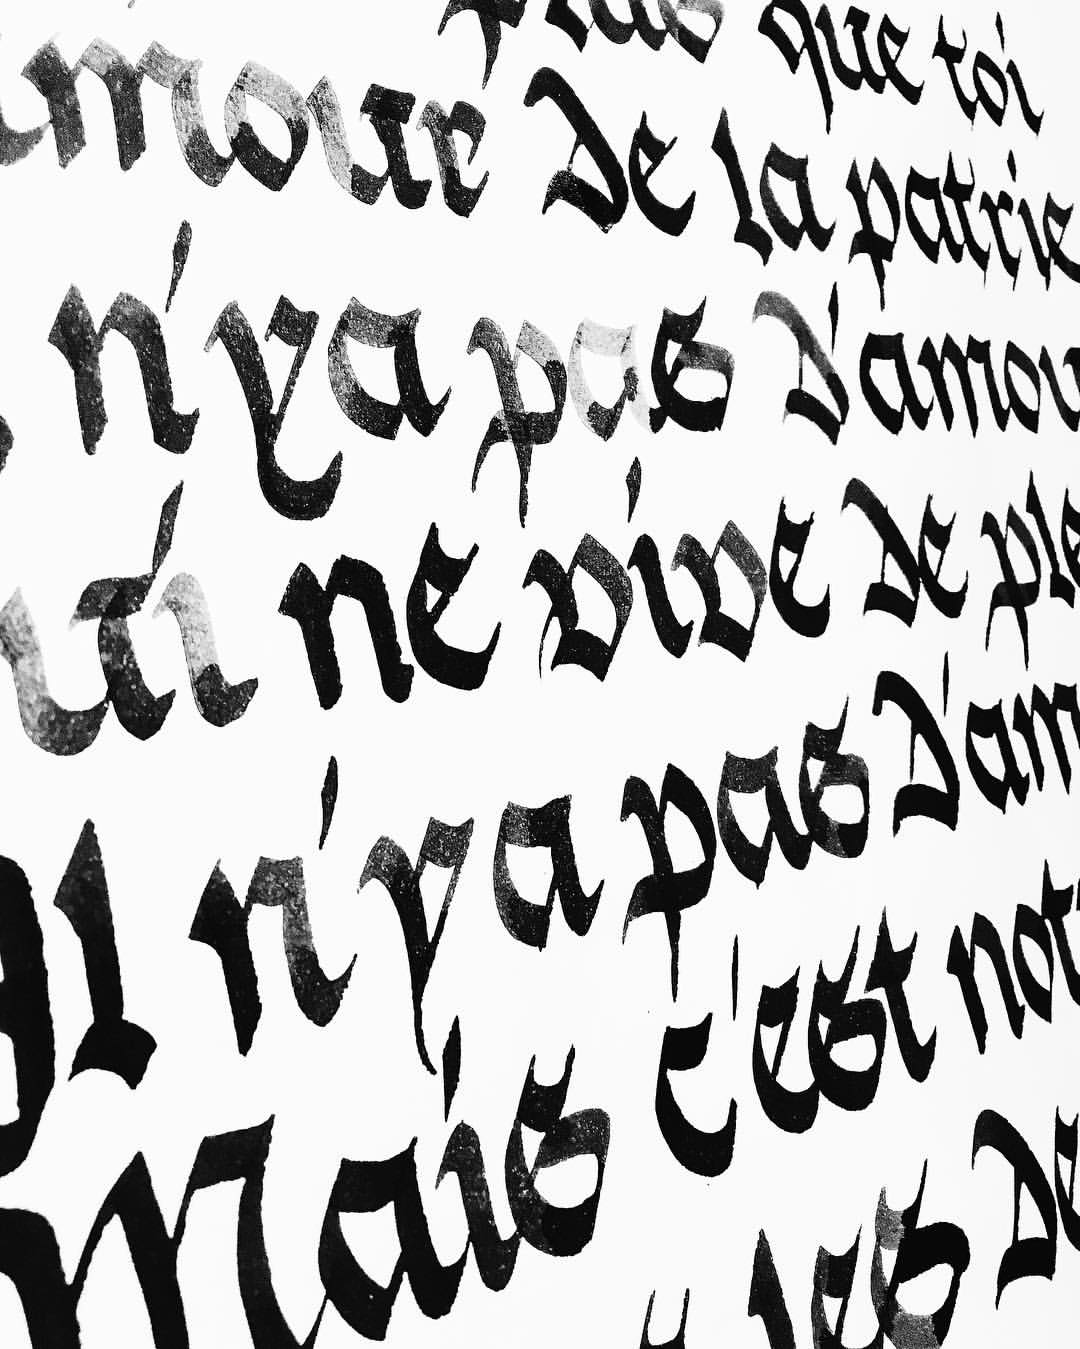 plus que toi
amour de la patrie
n'y a pas d'amou
ui ne vive de ple
Il n'y a pas d'am
Mais c'est not
les de